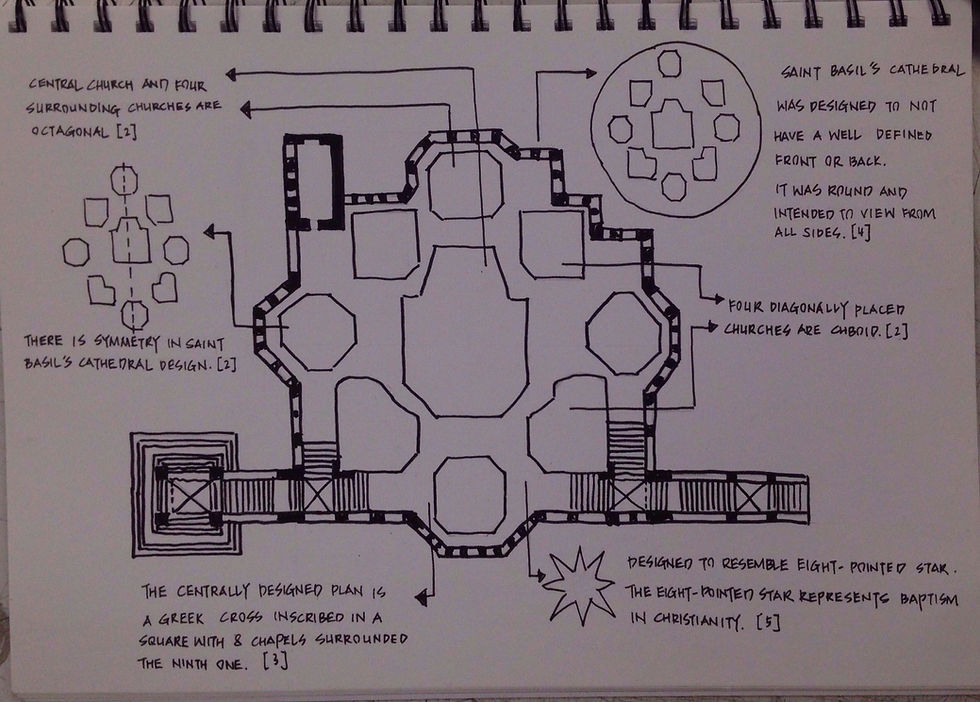 CENTRAL CHURCH AND FOUR
SURROUNDING CHURCHES ARE
OCTAGONAL [2]
SAINT BASIL'S CATHEDRAL
WAS DESIGNED TO NOT
HAVE A WELL DEFINED
FRONT OR BACK.
IT WAS ROUND AND
INTENDED TO VIEW FROM
ALL SIDES. [4]
THERE IS SYMMETRY IN SAINT
BASIL'S CATHEDRAL DESIGN. [2]
FOUR DIAGONALLY PLACED
CHURCHES ARE CUBOID. [2]
THE CENTRALLY DESIGNED PLAN IS
A GREEK CROSS INSCRIBED IN A
SQUARE WITH 8 CHAPELS SURROUNDED
THE NINTH ONE. [3]
DESIGNED TO RESEMBLE EIGHT-POINTED STAR.
THE EIGHT-POINTED STAR REPRESENTS BAPTISM
IN CHRISTIANITY. [5]